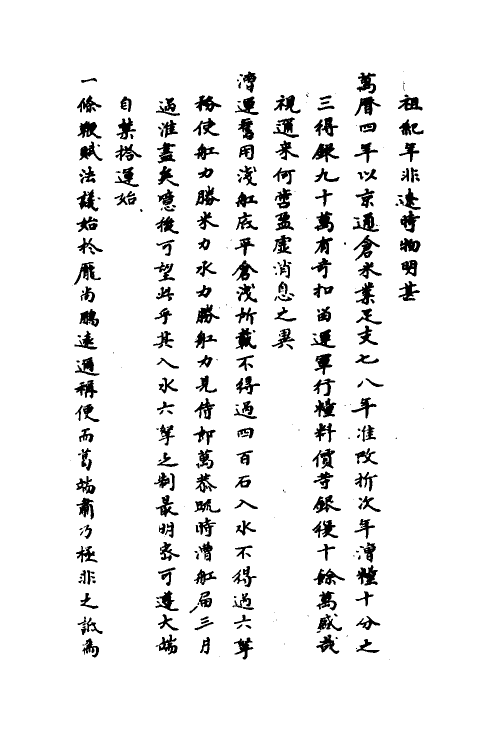 祖紀年非遠時物明甚
萬曆四年以京通倉米業足支七八年准改折次年漕糧十分之
三得銀九十萬有奇扣留運軍行糧料價等銀復十餘萬盛哉
視通來何啻盈虛消息之異
漕運舊用淺舡底平倉淺所載不得過四百石入水不得過六拏
務使舡力勝米力水力勝舡力見侍郎萬恭疏時漕舡届三月
過淮盡矣噫後可望此乎其入水六拏之制最明密可遵大端
自禁搭運始
一條鞭賦法議始於龐尚鵬遠邇稱便而葛端肅乃極非之詆為